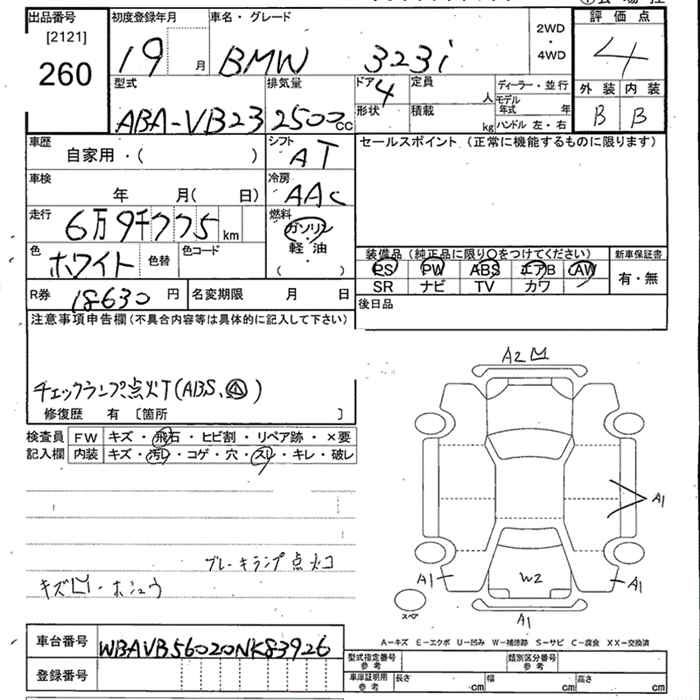 出品番号
[2121]
260
初度登録年月
19 月
車名・グレード
BMW 323i
2WD
・
4WD
評価点
4
外装 内装
B B
型式
ABA-VB23
排気量
2500cc
ドア
4
形状
定員
人
積載
kg
ディーラー・並行
モデル年式 年
ハンドル 左・右
車歴
自家用・( )
シフト
AT
セールスポイント (正常に機能するものに限ります)
車検
年 月( 日)
冷房
AAC
走行
6万9千775 km
燃料
ガソリン
軽・油
( ・ )
色
ホワイト
色替
色コード
装備品 (純正品に限り○をつけてください)
PS PW ABS エアB AW
SR ナビ TV カワ
新車保証書
有・無
R券
18630 円
名変期限 月 日
後日品
注意事項申告欄(不具合内容等は具体的に記入して下さい)
チェックランプ点灯(ABS、)
修復歴 有 〔箇所 〕
検査員
記入欄
FW キズ・飛石・ヒビ割・リペア跡・×要
内装 キズ・汚れ・コゲ・穴・スレ・キレ・破レ
ブレーキランプ点
キズ凹・ホシュウ
A2凹
A1
A1
W2
A1
A1
スペア
A-キズ E-エクボ U-凹み W-補修跡 S-サビ C-腐食 XX-交換済
車台番号
WBAVB56020NK83926
登録番号
型式指定番号
参考
類別区分番号
参考
車庫証明用
参考
長さ cm
幅 cm
高さ cm